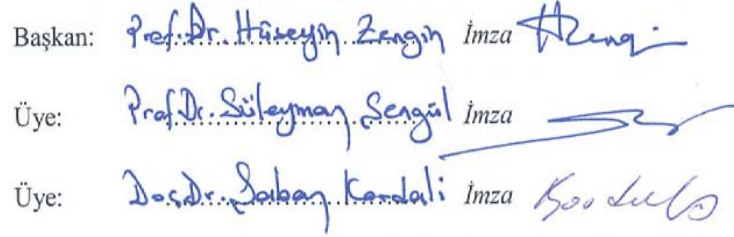 Başkan: Prof. Dr. Hüseyin Zengin İmza
Üye: Prof. Dr. Süleyman Şengül İmza
Üye: Doç. Dr. Şaban Kardaş İmza